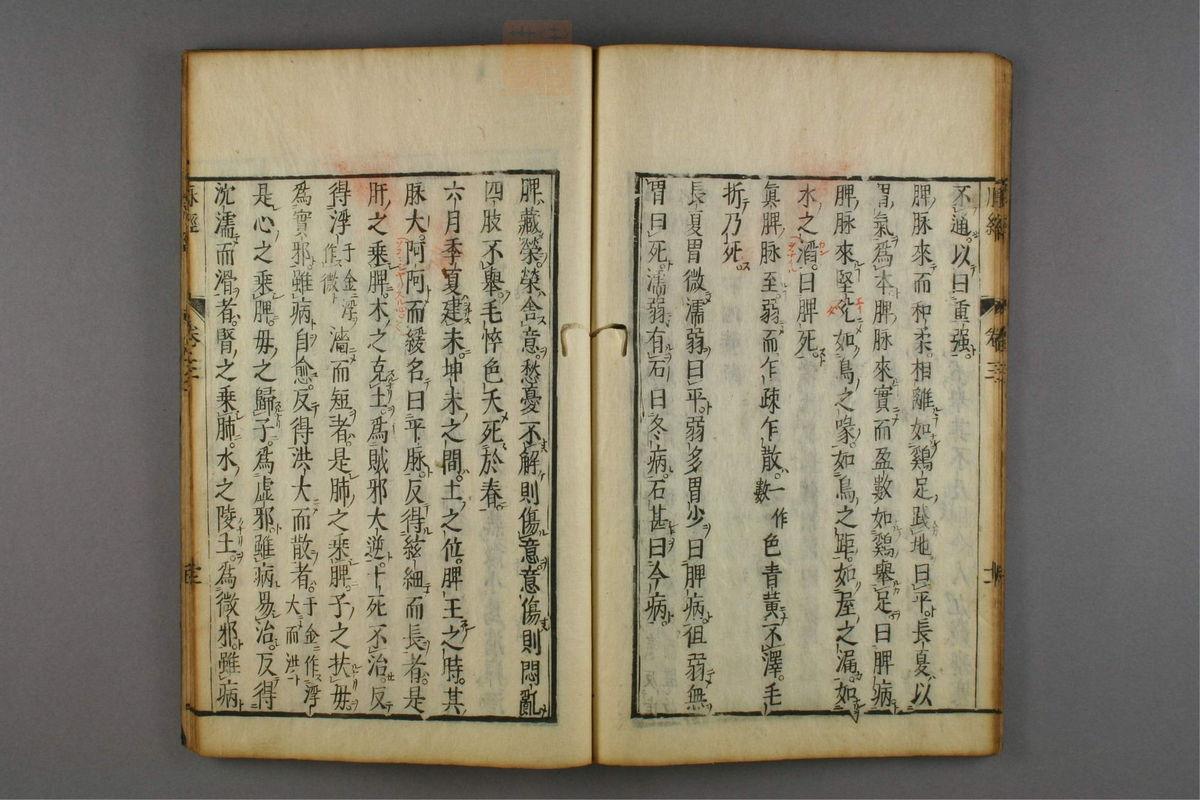 不通以曰重强
脾脉來而和柔相離如鷄足踐地曰平長夏以
胃氣爲本脾脉來實而盈數如鷄舉足曰脾病
脾脉來堅兊如鳥之喙如鳥之距如屋之漏如
水之溜曰脾死
眞脾脉至弱而乍疎乍散一作數色青黄不澤毛
折乃死
長夏胃微濡弱曰平弱多胃少曰脾病徂弱無
胃曰死濡弱有石曰冬病石甚曰今病
脾藏榮榮舎意愁憂不解則傷意意傷則悶亂
四肢不舉毛悴色夭死於春
六月季夏建未坤未之間土之位脾王之時其
脉大阿阿而緩名曰平脉反得絃細而長者是
肝之乘脾木之克土爲賊邪大逆十死不治反
得浮千金浮作微濇而短者是肺之乘脾子之扶毋
爲實邪雖病自愈反得洪大而散者千金作浮大而洪
是心之乘脾毋之歸子爲虚邪雖病易治反得
沈濡而滑者腎之乘脾水之陵土爲微邪雖病
脉經
卷之三